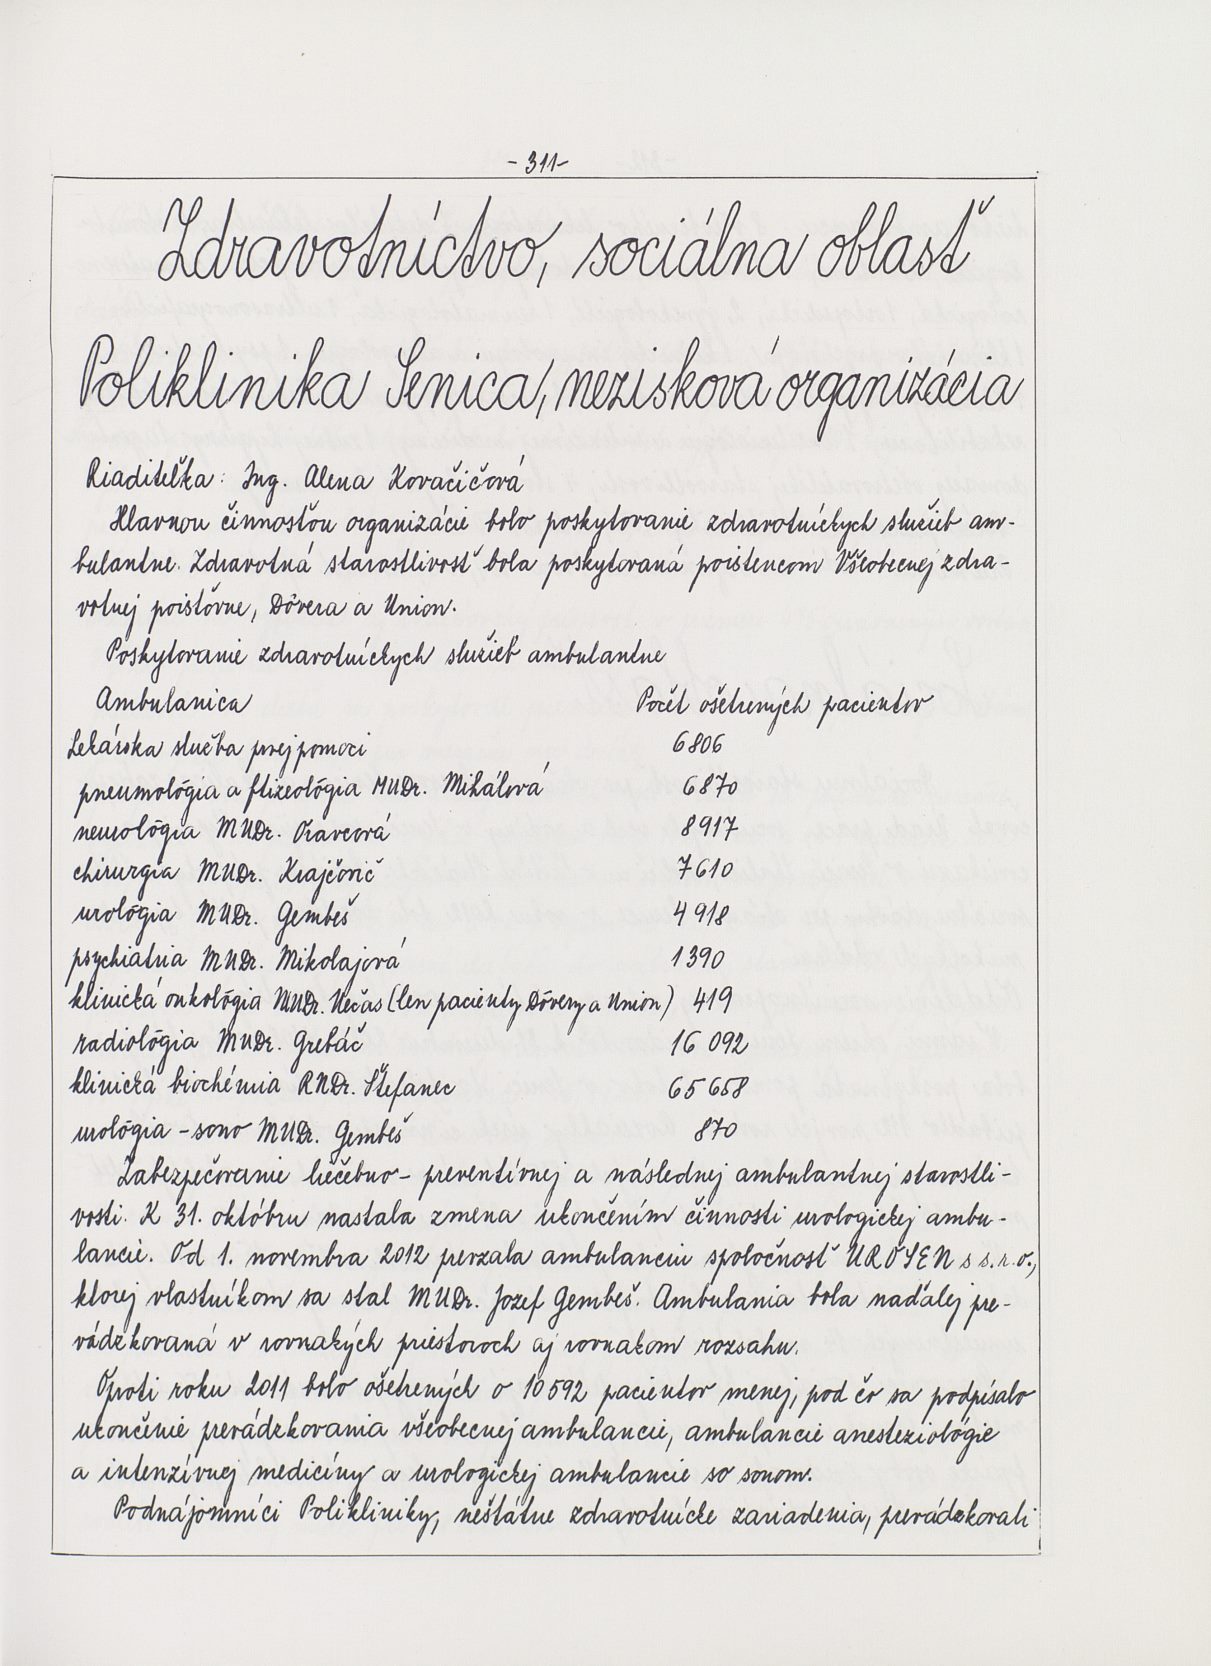 - 311 -
Zdravotníctvo, sociálna oblasť
Poliklinika Senica, nezisková organizácia
Riaditeľka: Ing. Alena Kovačičová
Hlavnou činnosťou organizácie bolo poskytovanie zdravotníckych služieb am-
bulantne. Zdravotná starostlivosť bola poskytovaná poistencom Všeobecnej zdra-
votnej poisťovne, Dôvera a Union.
Poskytovanie zdravotníckych služieb ambulantne
Ambulanica Počet ošetrených pacientov
Lekárska služba prej pomoci 6806
pneumológia a ftizeológia MUDr. Mihálová 6870
neurológia MUDr. Kravcová 8917
chirurgia MUDr. Krajčovič 7610
urológia MUDr. Gembeš 4 918
psychiatria MUDr. Mikolajová 1390
klinická onkológia MUDr. Nečas (len pacienty Dôvery a Union) 419
radiológia MUDr. Grebáč 16 092
klinická biochémia RNDr. Štefanec 65 658
urológia - sono MUDr. Gembeš 870
Zabezpečovanie liečebno - preventívnej a následnej ambulantnej starostli-
vosti. K 31. októbru nastala zmena ukončením činnosti urologickej ambu-
lancie. Od 1. novembra 2012 prevzala ambulanciu spoločnosť UROSEN s s.r.o.,
ktorej vlastníkom sa stal MUDr. Jozef Gembeš. Ambulania bola naďalej pre-
vádzkovaná v rovnakých priestoroch aj rovnakom rozsahu.
Oproti roku 2011 bolo ošetrených o 10 592 pacientov menej, pod čo sa podpísalo
ukončenie prevádzkovania všeobecnej ambulancie, ambulancie anesteziológie
a intenzívnej medicíny a urologickej ambulancie so sonom.
Podnájomníci Polikliniky, neštátne zdravotnícke zariadenia, prevádzkovali